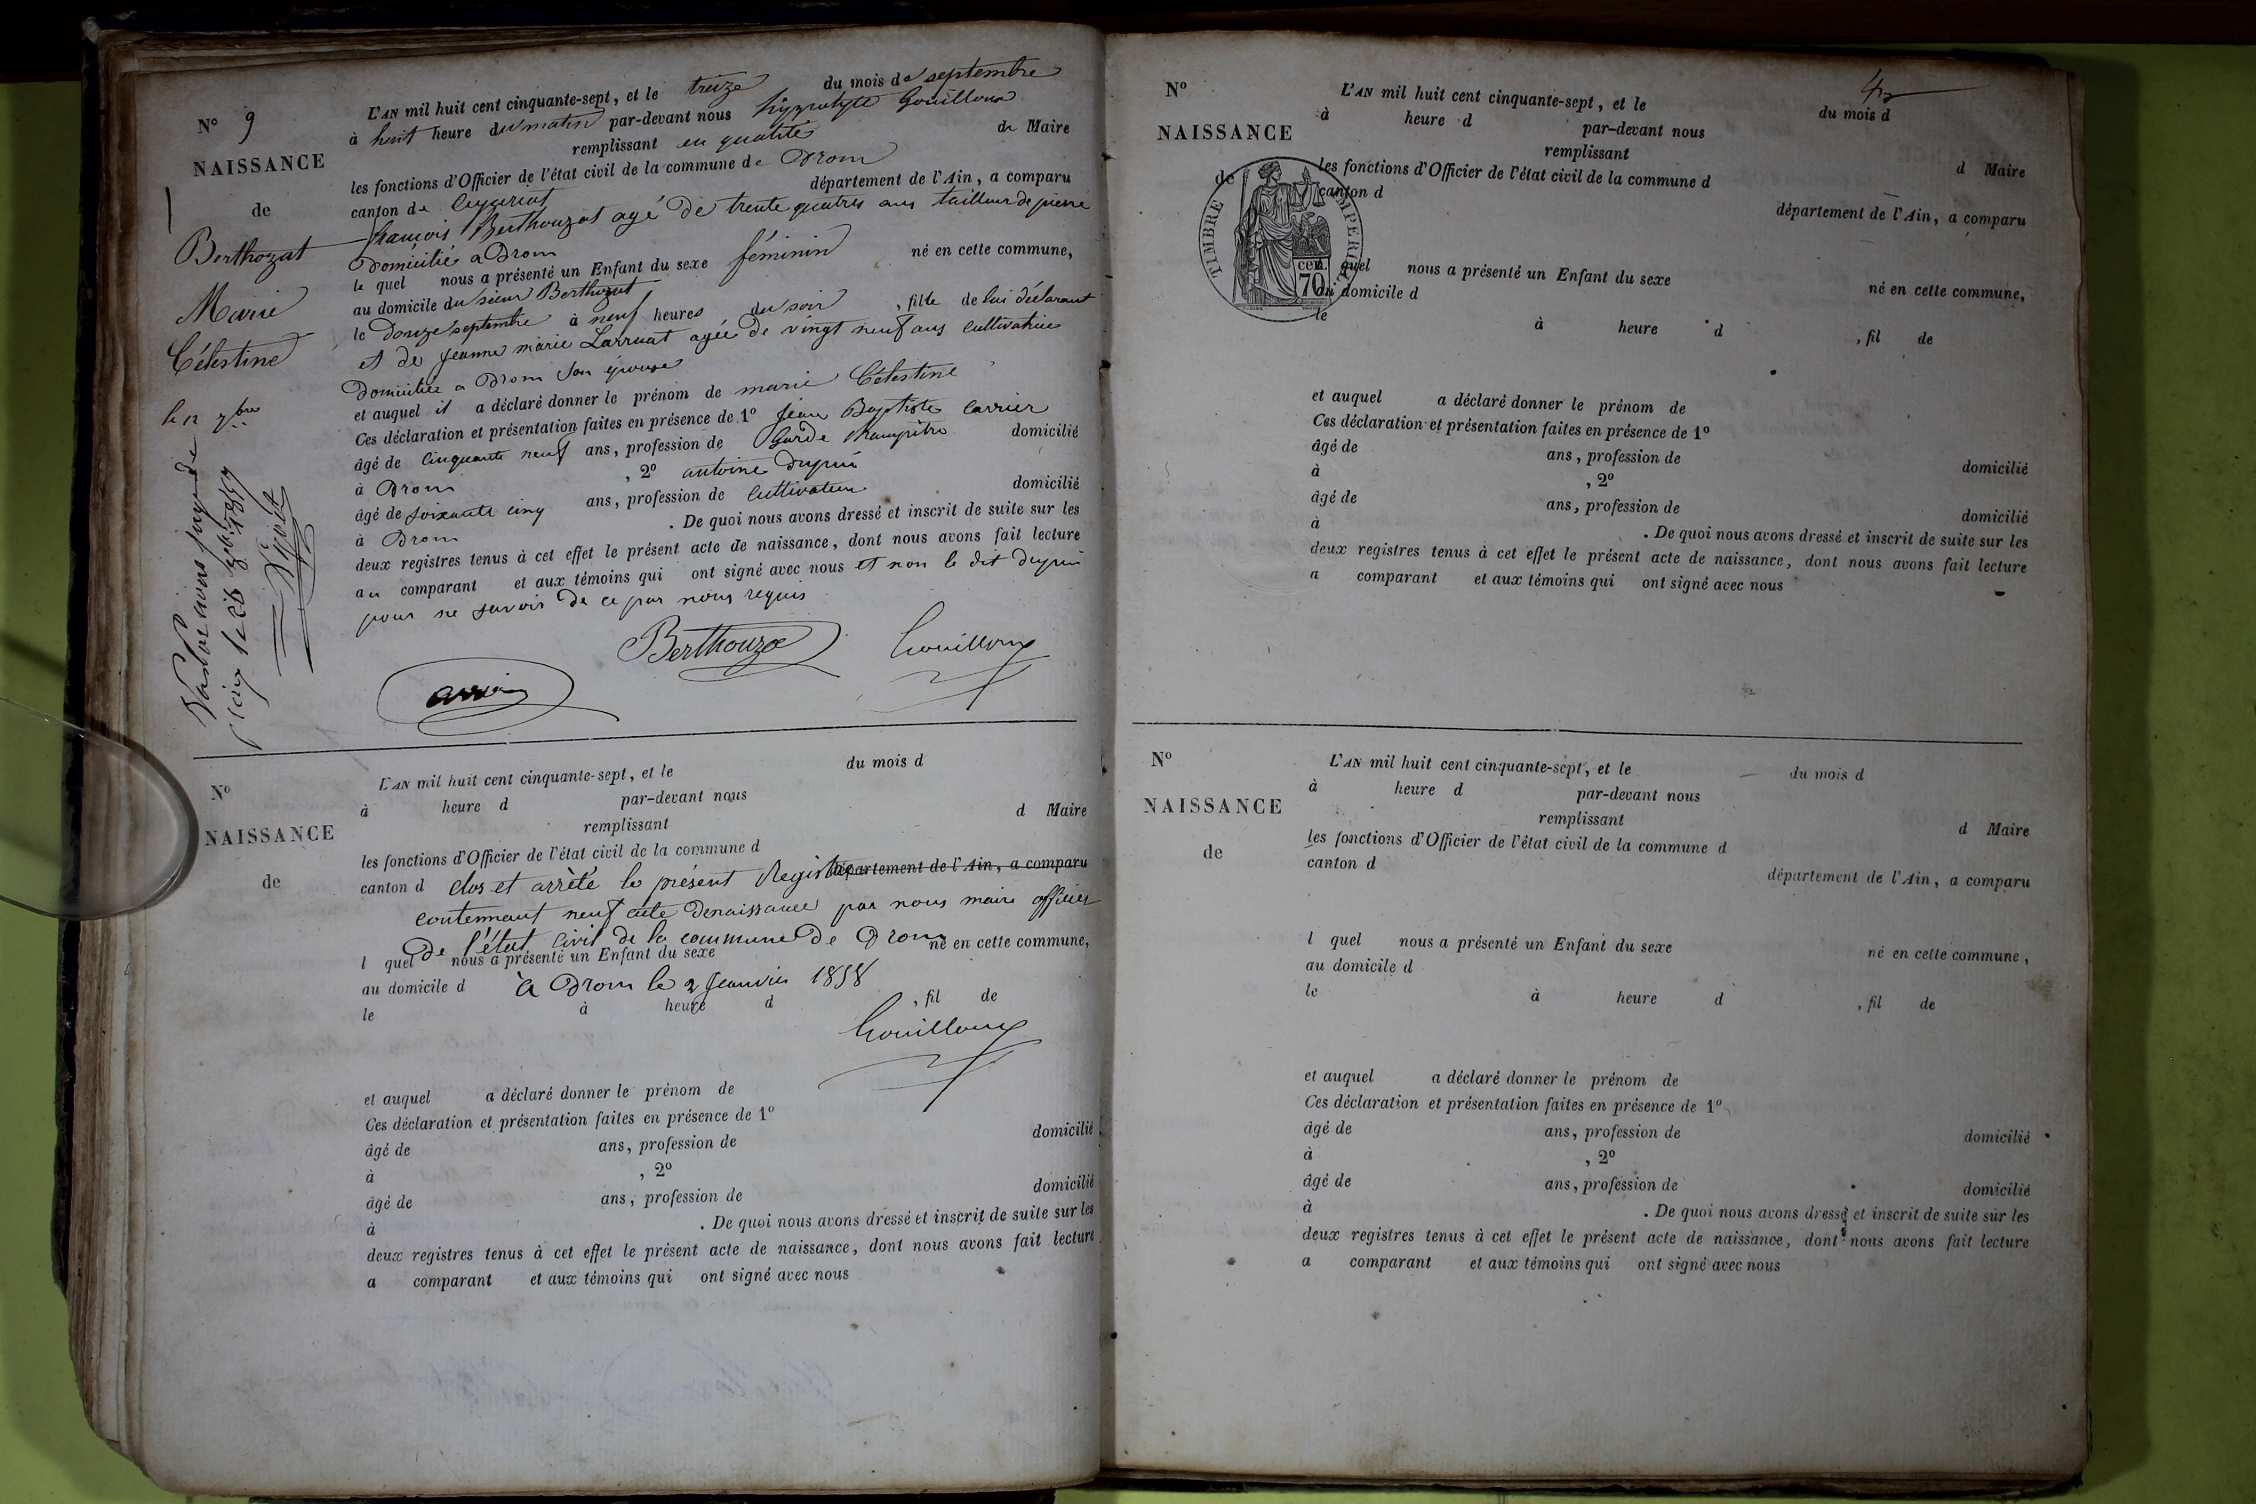 N° 9
NAISSANCE
de
Berthozat
Marie
Célestine
le 12 7bre
L'AN mil huit cent cinquante-sept, et le treize du mois de septembre
à huit heure du matin par-devant nous hyppolyte Gouilloux
remplissant en qualité de Maire
les fonctions d'Officier de l'état civil de la commune de Drom
canton de Ceyzeriat département de l'Ain, a comparu
François Berthouzat agé de trente quatres ans tailleur de pierre
Domicilié a Drom
le quel nous a présenté un Enfant du sexe féminin né en cette commune,
au domicile du sieur Berthozat
le Douze septembre à neuf heures du soir, fille de lui déclarant
et de jeanne marie Larruat agée de vingt neuf ans cultivatrice
Domiciliée a Drom son épouse
et auquel il a déclaré donner le prénom de marie Célestine
Ces déclaration et présentation faites en présence de 1° Jean Baptiste Carrier
âgé de Cinquante neuf ans, profession de Garde Champêtre domicilié
à Drom, 2° antoine dupuis
âgé de soixante cinq ans, profession de Cultivateur domicilié
à Drom. De quoi nous avons dressé et inscrit de suite sur les
deux registres tenus à cet effet le présent acte de naissance, dont nous avons fait lecture
au comparant et aux témoins qui ont signé avec nous et non le dit dupuis
pour ne savoir de ce par nous requis
Berthouza Gouilloux
N°
NAISSANCE
de
L'AN mil huit cent cinquante-sept, et le du mois d
à heure d par-devant nous
remplissant d Maire
les fonctions d'Officier de l'état civil de la commune d
canton d Clos et arrèté le présent Registre département de l'Ain, a comparu
contennant neuf acte denaissance par nous maire officier
De l'état civil de la commune De Drom né en cette commune,
l quel nous a présenté un Enfant du sexe
au domicile d à Drom le 2 Jeanvier 1858
le à heure d , fil de
Gouilloux
et auquel a déclaré donner le prénom de
Ces déclaration et présentation faites en présence de 1°
âgé de ans, profession de domicilié
à , 2°
âgé de ans, profession de domicilié
à . De quoi nous avons dressé et inscrit de suite sur les
deux registres tenus à cet effet le présent acte de naissance, dont nous avons fait lecture
a comparant et aux témoins qui ont signé avec nous
N°
NAISSANCE
de
TIMBRE IMPERIAL
cen.
70
L'AN mil huit cent cinquante-sept, et le du mois d
à heure d par-devant nous
remplissant d Maire
les fonctions d'Officier de l'état civil de la commune d
canton d
département de l'Ain, a comparu
quel nous a présenté un Enfant du sexe né en cette commune,
au domicile d
le à heure d , fil de
et auquel a déclaré donner le prénom de
Ces déclaration et présentation faites en présence de 1°
âgé de ans, profession de domicilié
à , 2°
âgé de ans, profession de domicilié
à . De quoi nous avons dressé et inscrit de suite sur les
deux registres tenus à cet effet le présent acte de naissance, dont nous avons fait lecture
a comparant et aux témoins qui ont signé avec nous
N°
NAISSANCE
de
L'AN mil huit cent cinquante-sept, et le du mois d
à heure d par-devant nous
remplissant d Maire
les fonctions d'Officier de l'état civil de la commune d
canton d département de l'Ain, a comparu
l quel nous a présenté un Enfant du sexe né en cette commune,
au domicile d
le à heure d , fil de
et auquel a déclaré donner le prénom de
Ces déclaration et présentation faites en présence de 1°
âgé de ans, profession de domicilié
à , 2°
âgé de ans, profession de domicilié
à . De quoi nous avons dressé et inscrit de suite sur les
deux registres tenus à cet effet le présent acte de naissance, dont nous avons fait lecture
a comparant et aux témoins qui ont signé avec nous